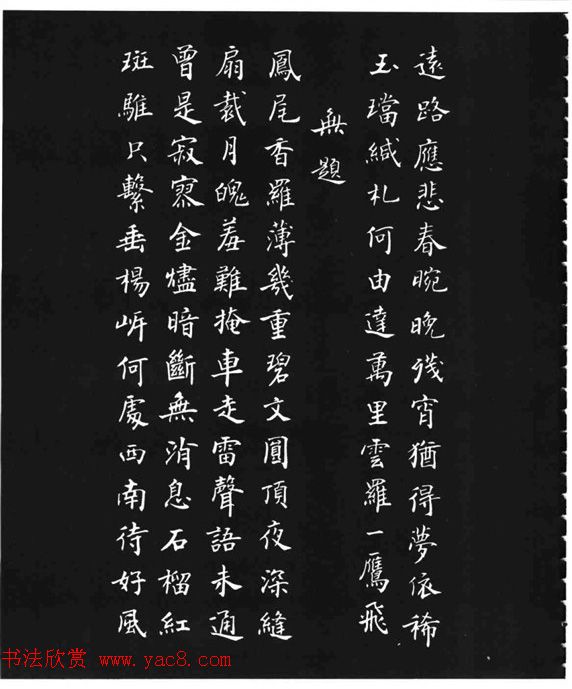 遠路應悲春晼晚殘宵猶得夢依稀
玉璫緘札何由達萬里雲羅一鴈飛
無題
鳳尾香羅薄幾重碧文圓頂夜深縫
扇裁月魄羞難掩車走雷聲語未通
曾是寂寥金燼暗斷無消息石榴紅
斑騅只繫垂楊岍何處西南待好風
书法欣赏 www.yac8.com